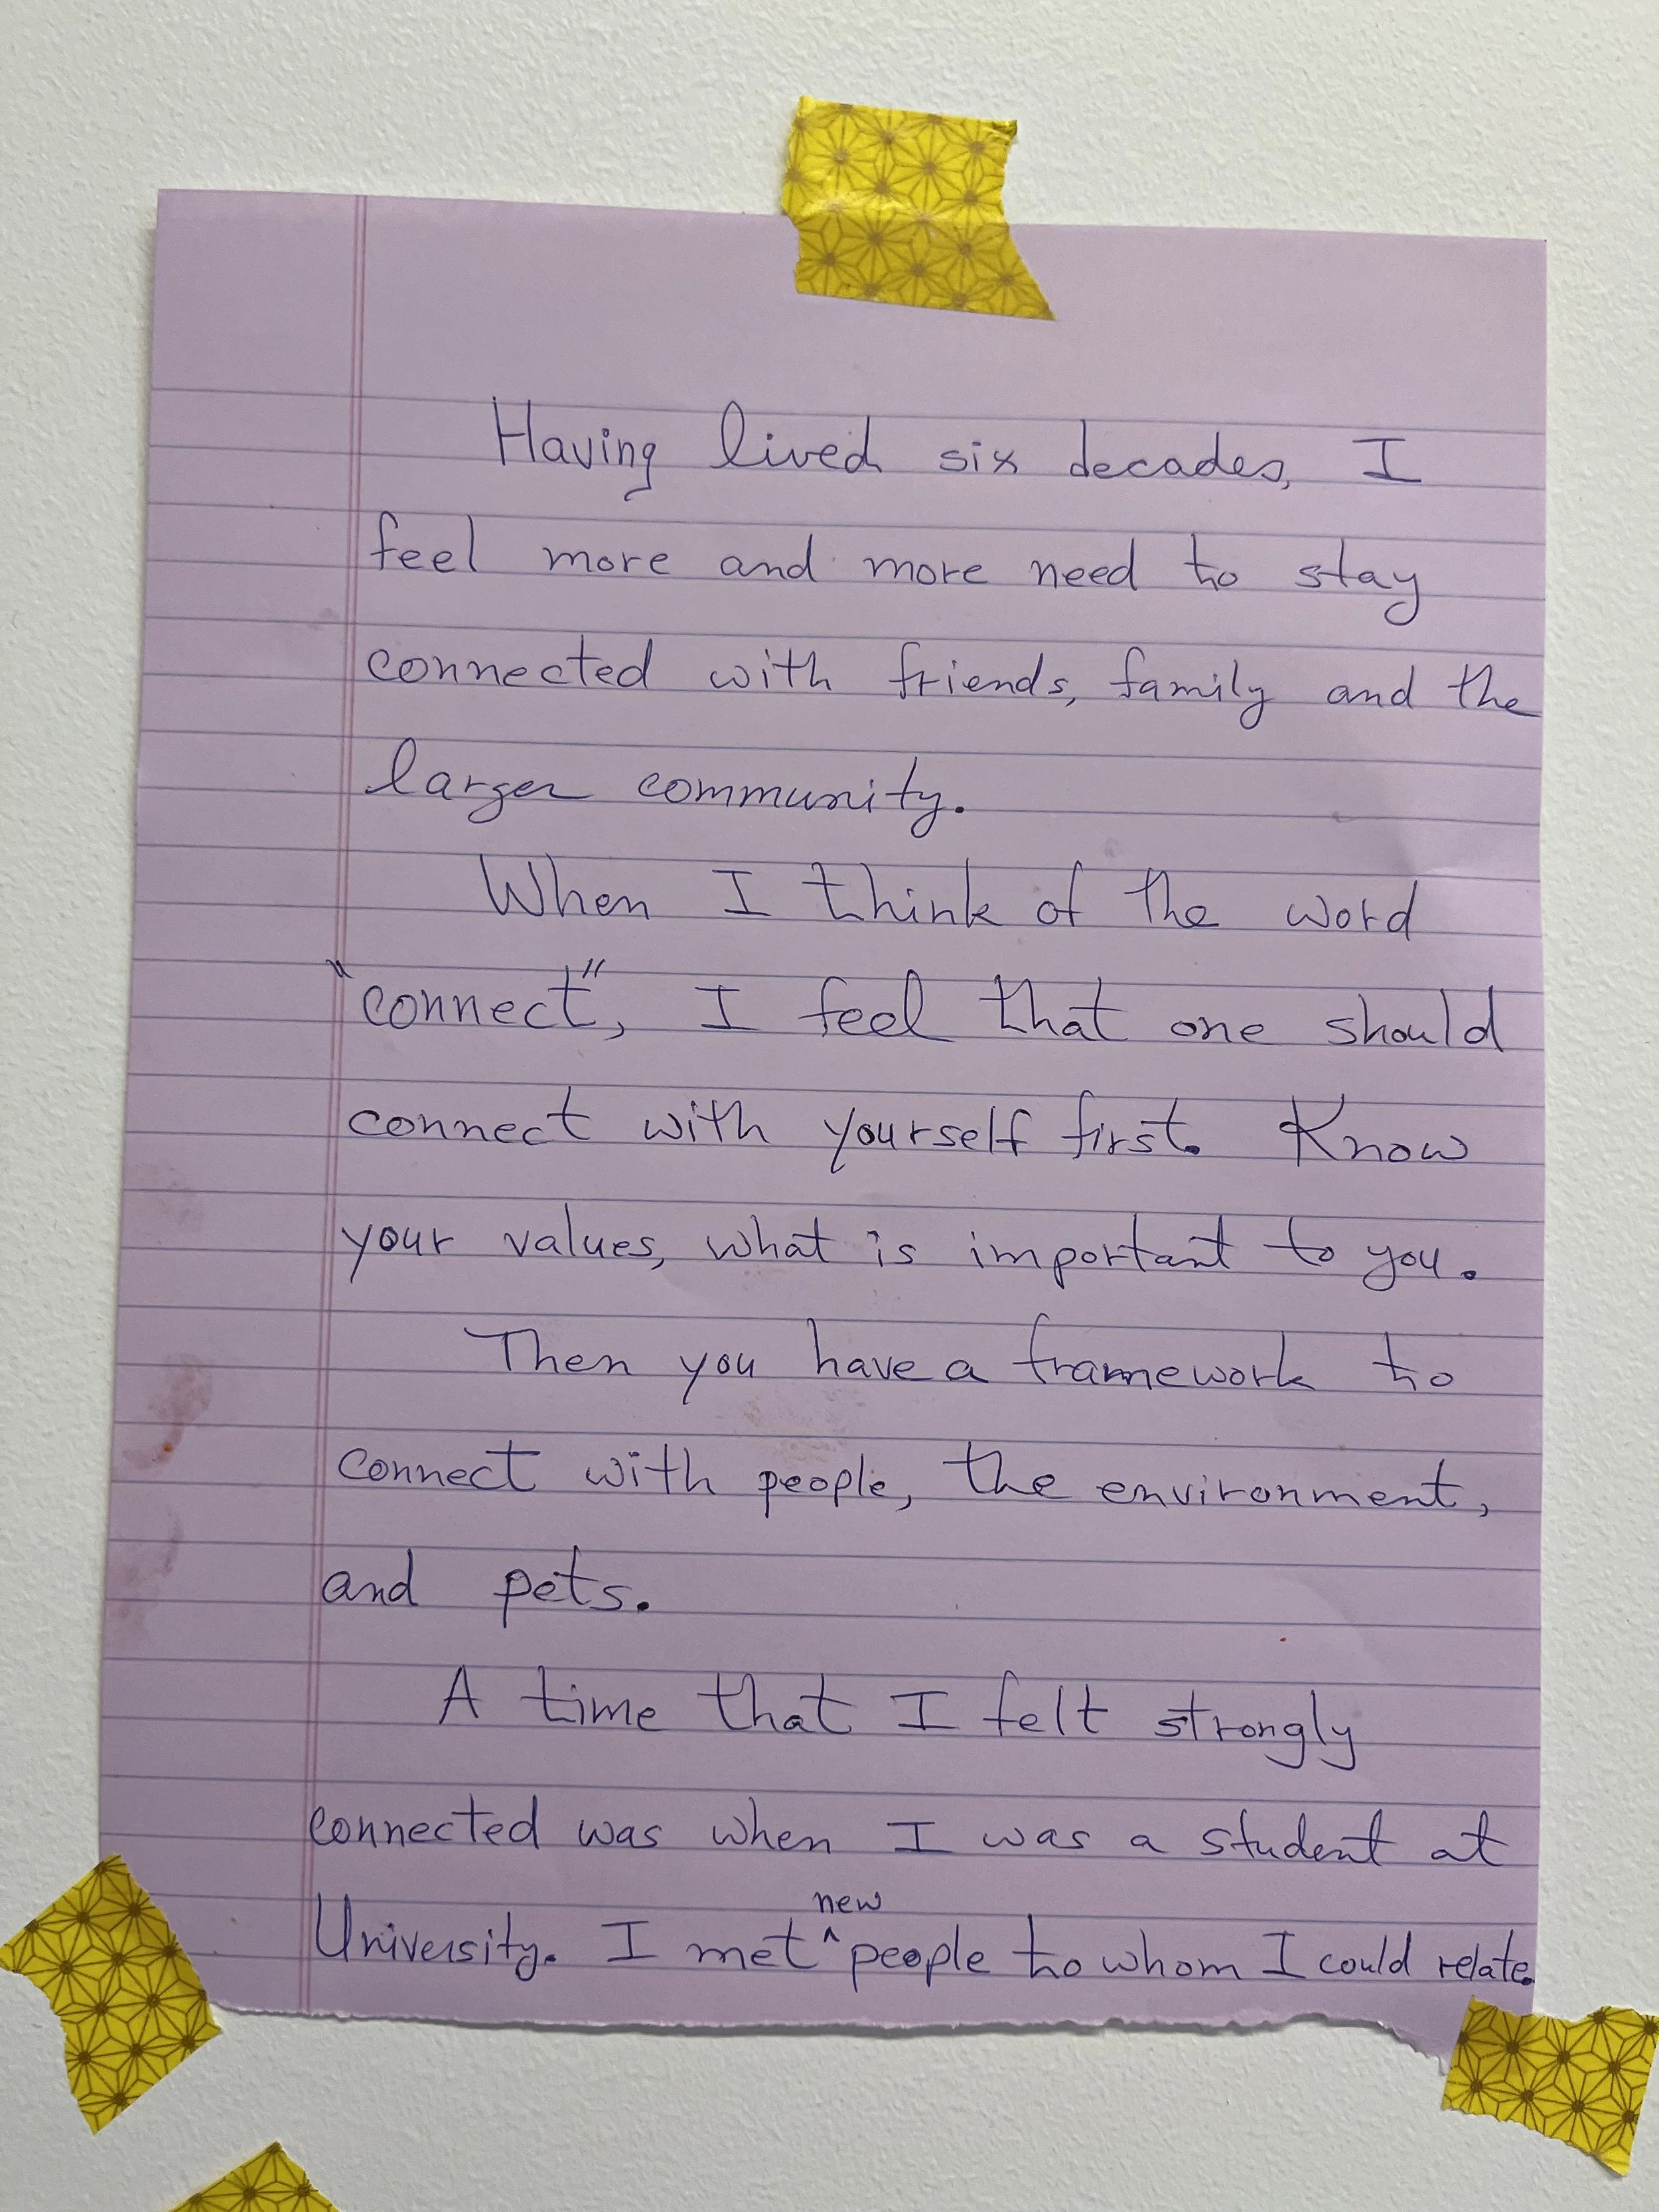 Having lived six decades, I
feel more and more need to stay
connected with friends, family and the
larger community.
When I think of the word
"connect", I feel that one should
connect with yourself first. Know
your values, what is important to you.
Then you have a framework to
connect with people, the environment,
and pets.
A time that I felt strongly
connected was when I was a student at
University. I met ^new people to whom I could relate.